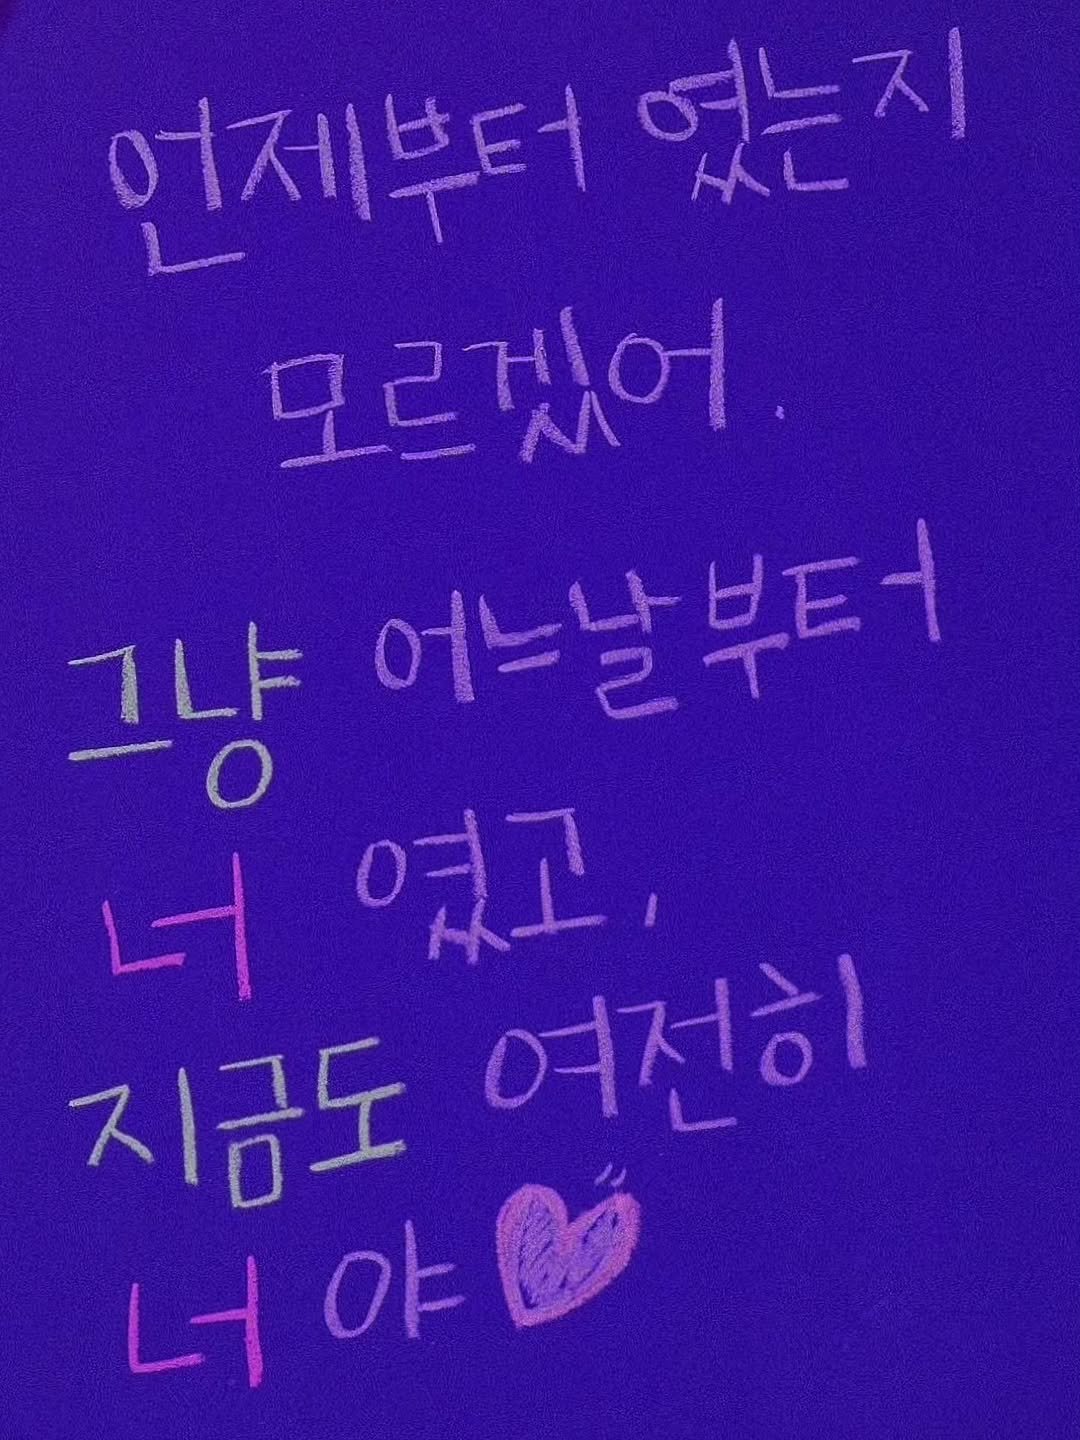 언제부터 였는지
모르겠어.
그냥 어느날부터
너 였고,
지금도 여전히
너야